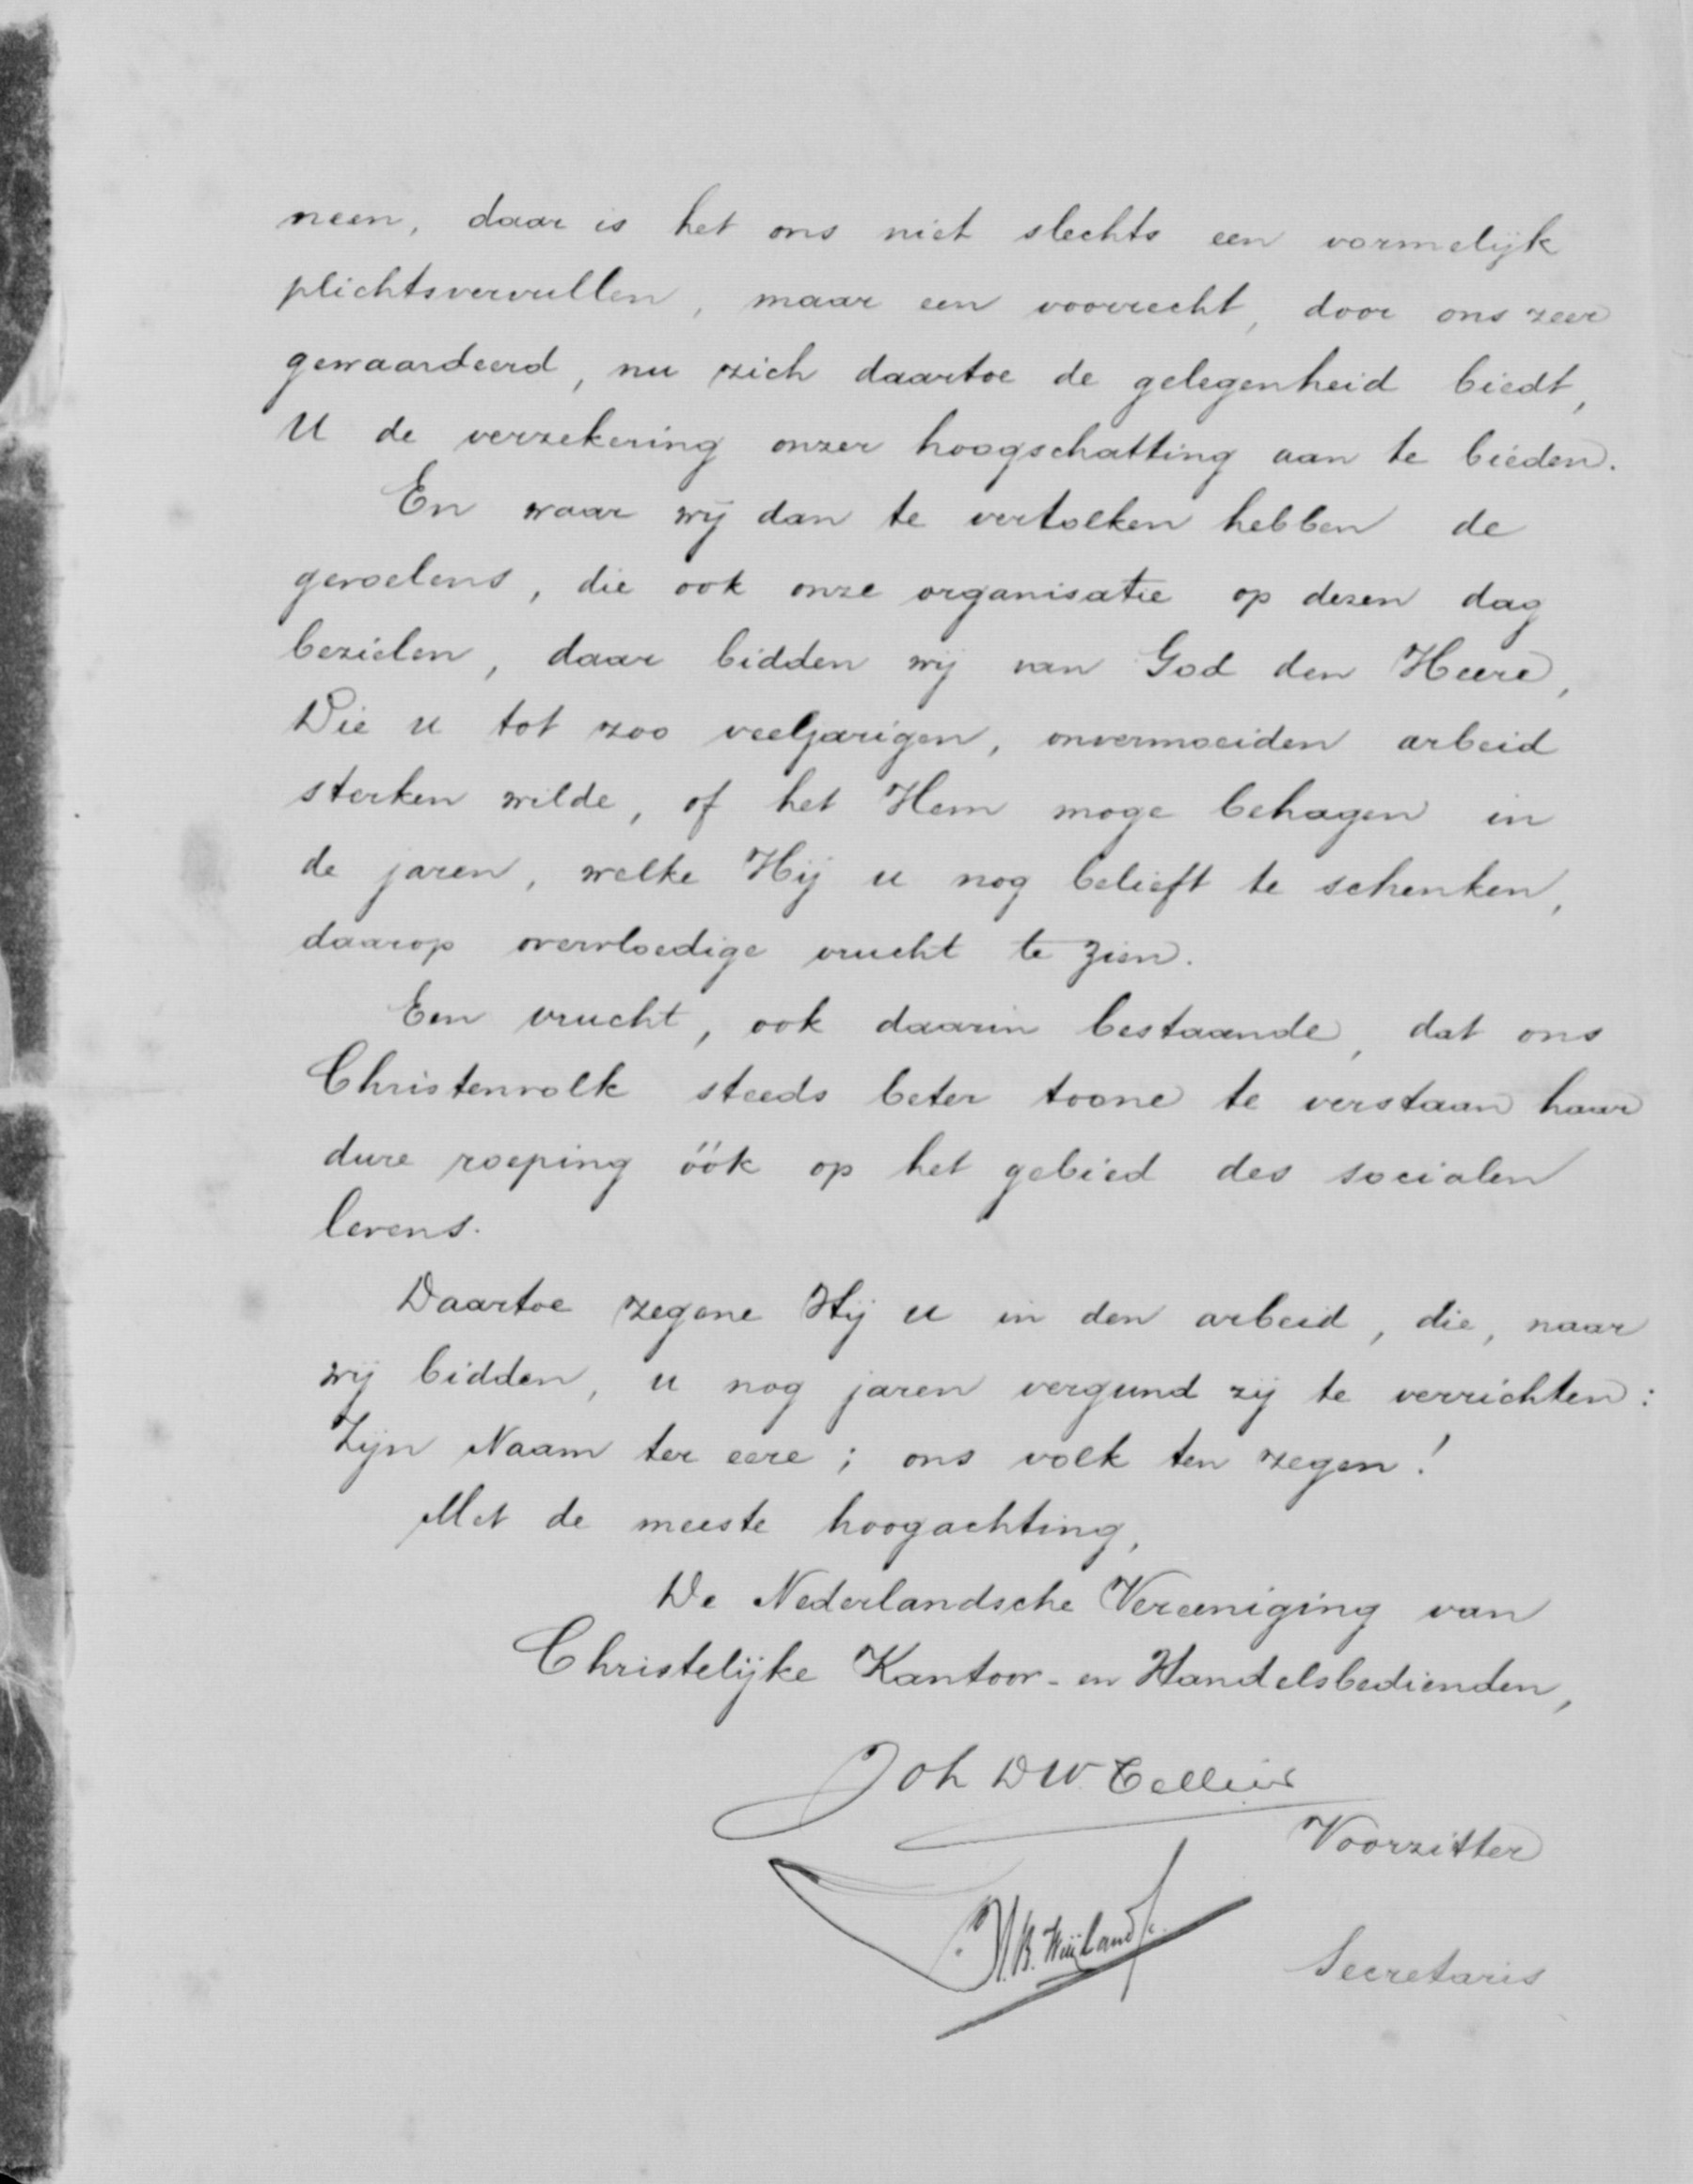 neen, daar is het ons niet slechts een vormelijk
plichtsvervullen, maar een voorrecht, door ons zeer
gewaardeerd, nu zich daartoe de gelegenheid biedt,
U de verzekering onzer hoogschatting aan te bieden.
En waar wij dan te vertolken hebben de
gevoelens, die ook onze organisatie op dezen dag
bezielen, daar bidden wij van God den Heere,
Die u tot zoo veeljarigen, onvermoeiden arbeid
sterken wilde, of het Hem moge behagen in
de jaren, welke Hij u nog belieft te schenken,
daarop overvloedige vrucht te zien.
Een vrucht, ook daarin bestaande, dat ons
Christenvolk steeds beter toone te verstaan haar
dure roeping óók op het gebied des socialen
levens.
Daartoe zegene Hij u in den arbeid, die, naar
wij bidden, u nog jaren vergund zij te verrichten:
Zijn Naam ter eere; ons volk ten zegen!
Met de meeste hoogachting,
De Nederlandsche Vereeniging van
Christelijke Kantoor- en Handelsbedienden,
Joh DW
Voorzitter
Secretaris